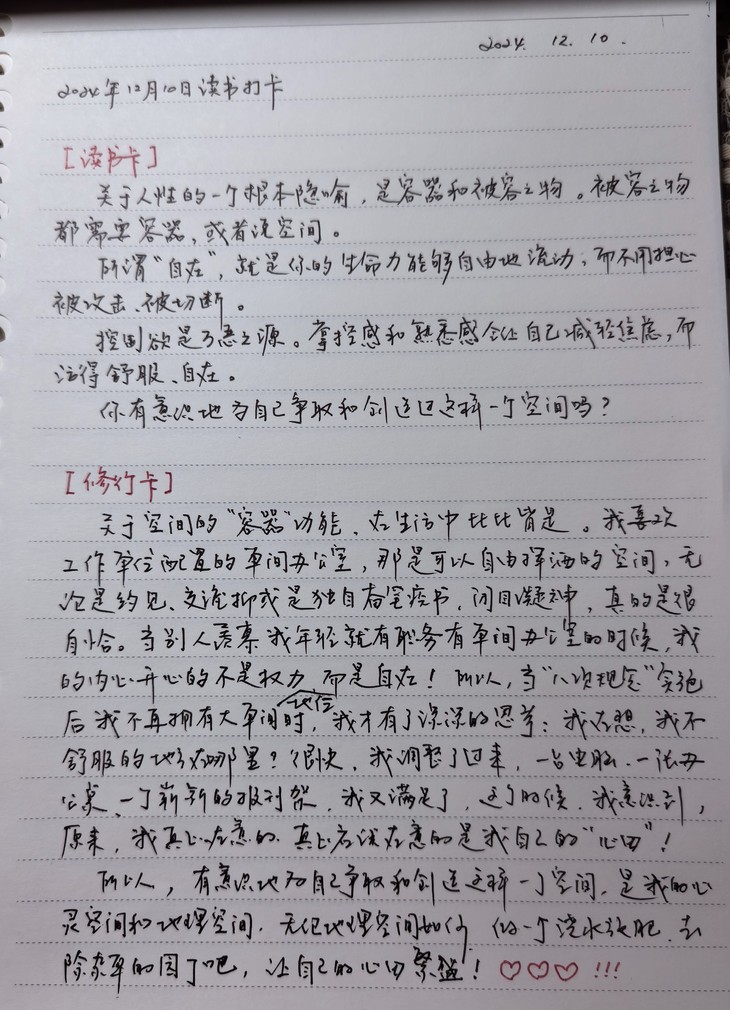 2024. 12. 10.
2024年12月10日读书打卡
[读书卡]
关于人性的一个根本隐喻，是容器和被容之物。被容之物
都需要容器，或者说空间。
所谓“自在”，就是你的生命力能够自由地流动，而不用担心
被攻击、被切断。
控制欲是万恶之源。掌控感和熟悉感会让自己减轻焦虑，而
活得舒服、自在。
你有意识地为自己争取和创造过这样一个空间吗？
[修行卡]
关于空间的“容器”功能，在生活中比比皆是。我喜欢
工作单位配置的单间办公室，那是可以自由挥洒的空间，无
论是约见、交谈抑或是独自看窒读书、闭目凝神，真的是很
自恰。当别人羡慕我年轻就有职务有单间办公室的时候，我
的内心开心的不是权力地位而是自在！所以，当“八项规定”实施
后我不再拥有大单间时，我才有了深深的思考：我在想，我不
舒服的地方在哪里？很快，我调整了过来，一台电脑、一张办
公桌、一个崭新的报刊架，我又满足了，这个时候，我意识到，
原来，我真正在意的、真正应该在意的是我自己的“心田”！
所以，有意识地为自己争取和创造这样一个空间，是我的心
灵空间和地理空间，无论地理空间如何，做一个浇水施肥、去
除杂草的园丁吧，让自己的心田繁盛！♡♡♡ !!!